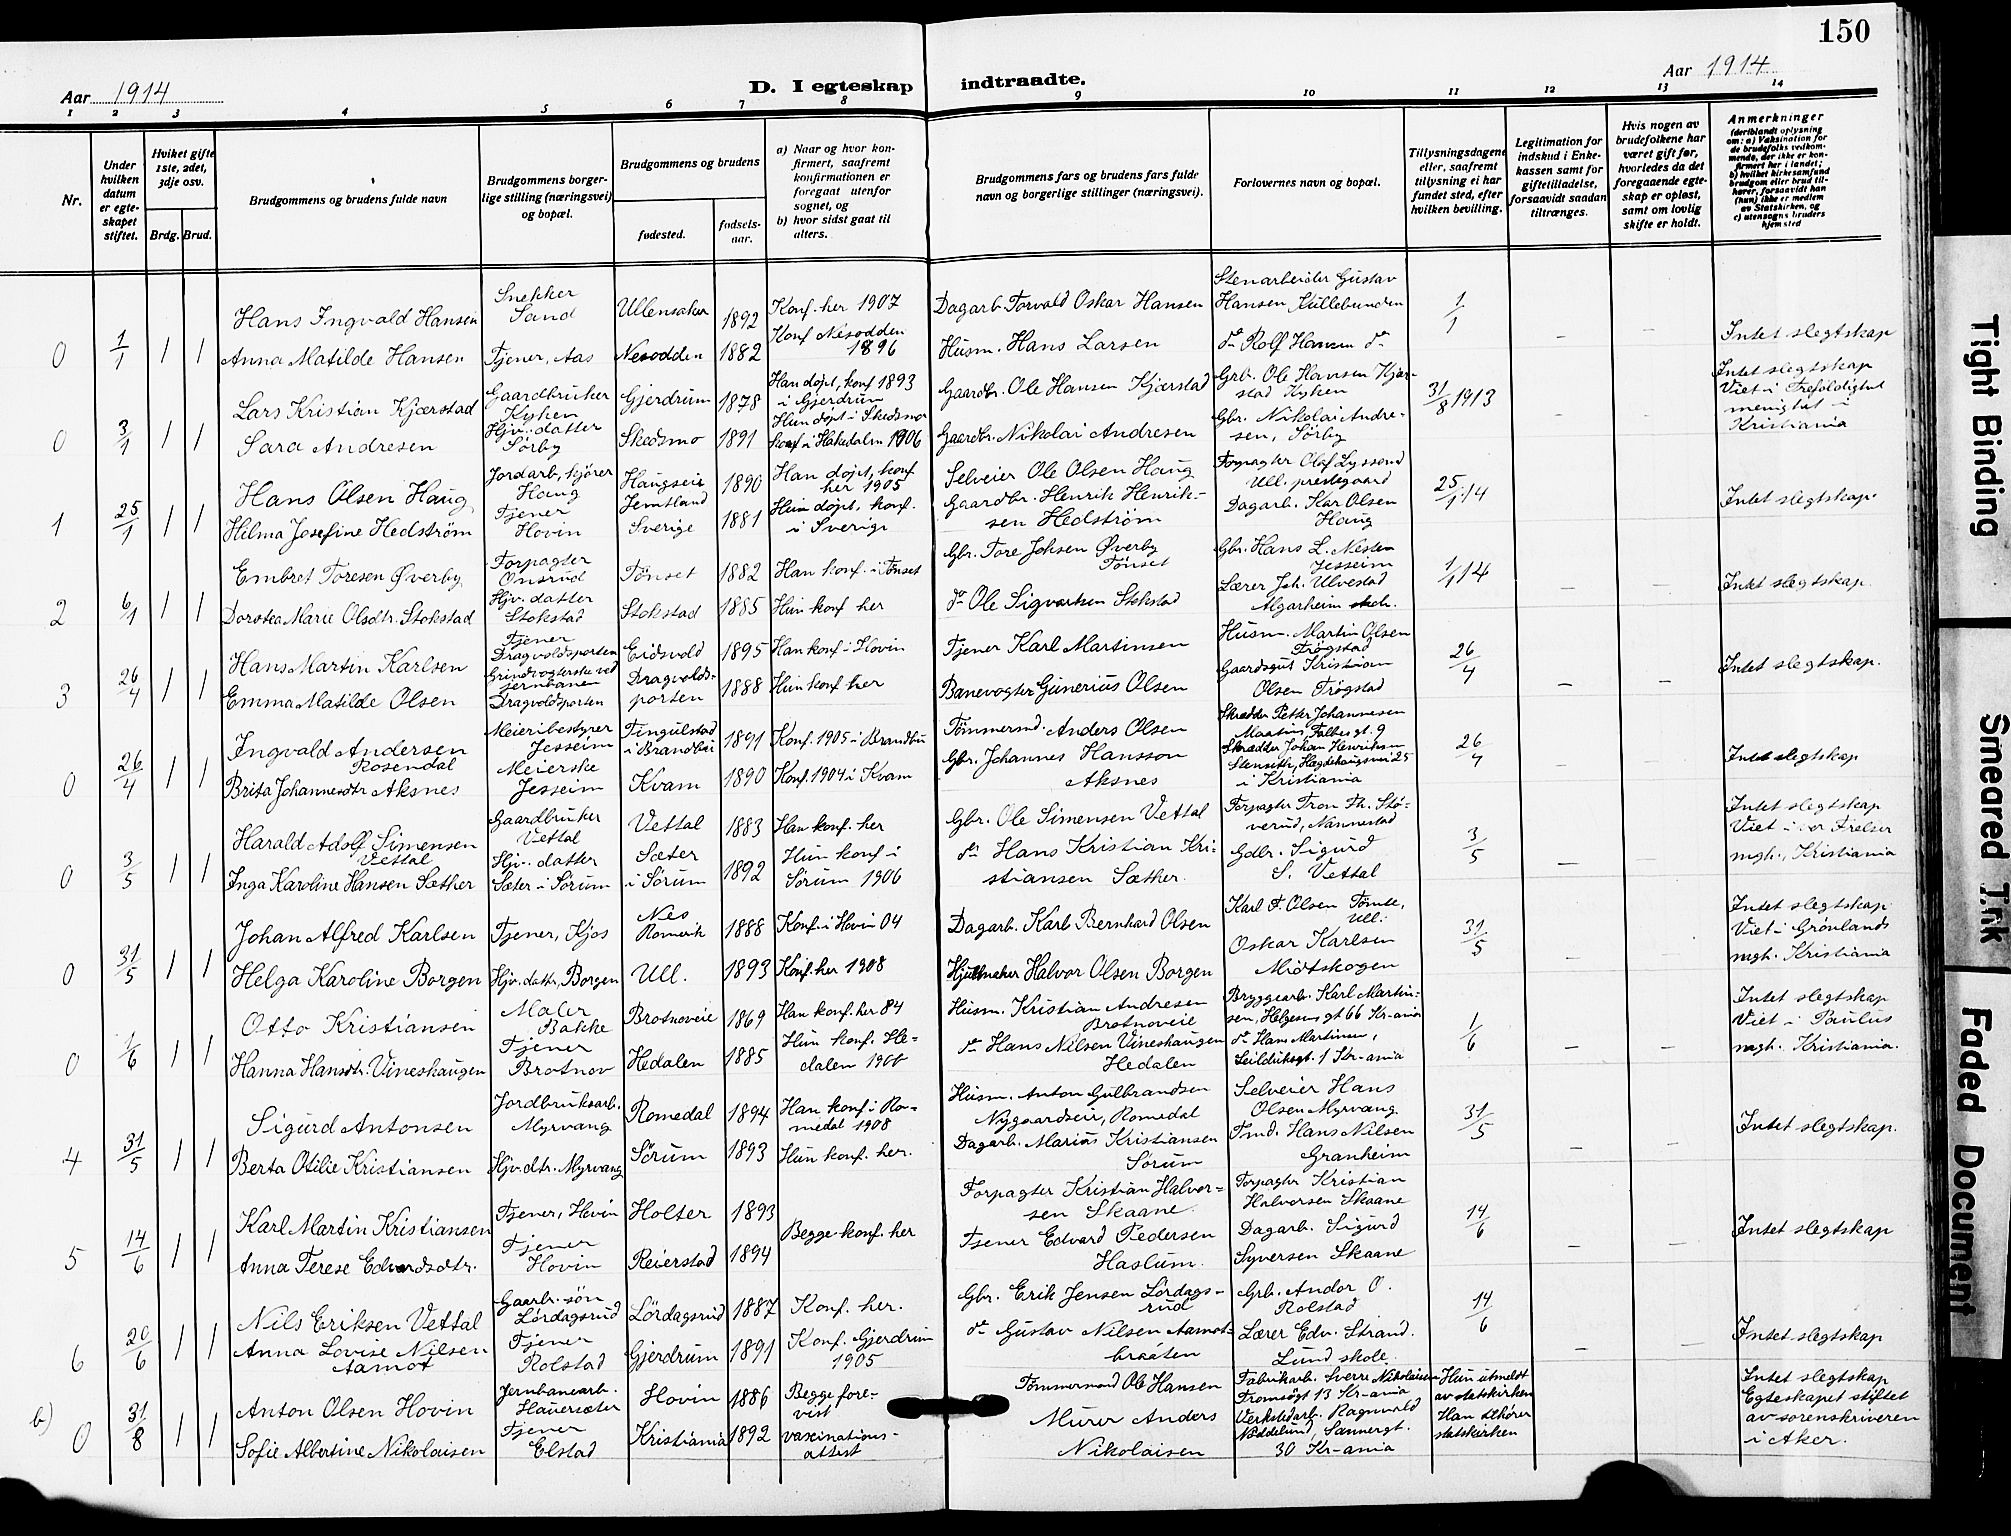 150
Aar 1914
D. I egteskap indtraadte.
Aar 1914
1 2 3 4 5 6 7 8 9 10 11 12 13 14
Nr.
Under hvilken datum er egteskapet stiftet.
Hviket gifte 1ste, 2det, 3dje osv.
Brdg. Brud.
Brudgommens og brudens fulde navn
Brudgommens borgerlige stilling (næringsvei) og bopæl.
Brudgommens og brudens
fødested.
fødselsaar.
a) Naar og hvor konfirmert, saafremt konfirmationen er foregaat utenfor sognet, og
b) hvor sidst gaat til alters.
Brudgommens fars og brudens fars fulde navn og borgerlige stillinger (næringsvei).
Forlovernes navn og bopæl.
Tillysningsdagene eller, saafremt tillysning ei har fundet sted, efter hvilken bevilling.
Legitimation for indskud i Enkekassen samt for giftetilladelse, forsaavidt saadan tiltrænges.
Hvis nogen av brudefolkene har været gift før, hvorledes da det foregaaende egteskap er opløst, samt om lovlig skifte er holdt.
Anmerkninger
(deriblandt oplysning om: a) Vaksination for de brudefolks vedkommende, der ikke er konfirmert her i landet; b) hvilket kirkesamfund brudgom eller brud tilhører, forsaavidt han (hun) ikke er medlem av Statskirken, og c) utensogns bruders hjemsted
0 1/1 1 1
Hans Ingvald Hansen Snekker Sand Ullensaker 1892 Konf. her 1907 Dagarb. Torvald Oskar Hansen Stenarbeider Gustav Hansen Kullebunden 1/1
Anna Matilde Hansen Tjener, Aas Nesodden 1882 Konf Nesodden 1896 Husm. Hans Larsen do Rolf Hansen do - - Intet slegtskap
0 3/1 1 1
Lars Kristian Kjærstad Gaardbruker Kyken Gjerdrum 1878 Han døpt, konf 1893 i Gjerdrum Gaardbr. Ole Hansen Kjærstad Grb. Ole Hansen Kjærstad Kyken 31/8 1913
Sara Andresen Hjv. datter Sørby Skedsmo 1891 Hun døpt i Skedsmo konf i Hakedalen 1906 Gaardbr. Nikolai Andresen Gbr. Nikolai Andresen, Sørby - - Intet slegtskap Viet i Trefoldighet menighet i Kristiania
1 25/1 1 1
Hans Olsen Haug Jordarb., kjører Haug Haugseie 1890 Han døpt, konf her 1905 Selveier Ole Olsen Haug Forpagter Olaf Lyssand Ull. prestegaard 25/1 14
Hilma Josefine Hedstrøm Tjener Hovin Jemtland Sverige 1881 Hun døpt, konf. i Sverige Gaardbr. Henrik Henriksen Hedstrøm Dagarb. Kar Olsen Haug - - Intet slegtskap.
2 6/1 1 1
Embret Toresen Øverby Forpagter Onsrud Tönset 1882 Han konf. i Tønset Gbr. Tore Johsen Øverby Tönset Gbr. Hans L. Nesten Jesseim 1/1 14
Dorotea Marie Olsdtr. Stokstad Hjv. datter Stokstad Stokstad 1885 Hun konf her do Ole Sigvartsen Stokstad Lærer Joh. Ulvestad Algarheim skole. - - Intet slegtskap.
3 26/4 1 1
Hans Martin Karlsen Tjener Dragvoldsporten Eidsvold 1895 Han konf i Hovin Tjener Karl Martinsen Husm. Martin Olsen Trøgstad 26/4
Emma Matilde Olsen Grindvogterske ved jernbanen Dragvoldsporten Dragvoldsporten 1888 Hun konf her Banevogter Gunerius Olsen Gaardsgut Kristian Olsen Trögstad - - Intet slegtskap.
0 26/4 1 1
Ingvald Andersen Rosendal Meieribestyrer Jesseim Tingulstad i Brandbu 1891 Konf. 1905 i Brandbu Tømmermd. Anders Olsen Skrædder Petter Johannesen Falbesgt. 9 26/4
Brita Johannesdtr Aksnes Meierske Jesseim Kvam 1890 Konf. 1904 i Kvam Gbr. Johannes Hansson Aksnes Skrædder Johan Henriksen Stenseth, Hægdehaugsvei 25 i Kristiania - - Intet slegtskap
0 3/5 1 1
Harald Adolf Simensen Vettal Gaardbruker Vettal Vettal 1883 Han konf. her Gbr. Ole Simensen Vettal Forpagter Tron Th. Støverud, Nannestad 3/5
Inga Karoline Hansen Sæther Hjv. datter Sæter i Sørum Sæter i Sørum 1892 Hun konf i Sørum 1906 do Hans Kristian Kristiansen Sæther. Gdbr. Sigurd S. Vettal - - Intet slegtskap Viet i Vor Frelser mgh., Kristiania
0 31/5 1 1
Johan Alfred Karlsen Tjener, Kjos Nes Romerik 1888 Konf. i Hovin 04 Dagarb. Karl Bernhard Olsen Karl F. Olsen Tømte, Ull. 31/5
Helga Karoline Borgen Hjv. datter, Borgen Ull. 1893 Konf. her 1908 Hjulmaker Halvor Olsen Borgen Oskar Karlsen Midtskogen - - Intet slegtskap Viet i Grønlands mgh. Kristiania
0 1/6 1 1
Otto Kristiansen Maler Bakke Brotnoveie 1869 Han konf. her 84 Husm. Kristian Andresen Brotnoveie Bryggearb. Karl Martinsen, Helgesens gt 66 Kr-ania 1/6
Hanna Hansdtr. Vineshaugen Tjener Brotnov Hedalen 1885 Hun konf. Hedalen 1900 do Hans Nilsen Vineshaugen Hedalen do Hans Martinsen, Seilduksgt. 1 Kr-ania - - Intet slegtskap Viet i Paulus mgh. Kristiania.
4 31/5 1 1
Sigurd Antonsen Jordbruksarb. Myrvang Romedal 1894 Han konf i Romedal 1908 Husm. Anton Gulbrandsen Nygaardseie, Romedal Selveier Hans Olsen Myrvang 31/5
Berta Otilie Kristiansen Hjv. dtr. Myrvang Sørum 1893 Hun konf. her. Dagarb. Marius Kristiansen Sørum Tmd. Hans Nilsen Granheim - - Intet slegtskap.
5 14/6 1 1
Karl Martin Kristiansen Tjener, Hovin Holter 1893 Begge konf. her Forpagter Kristian Halvorsen Skaane. Forpagter Kristian Halvorsen Skaane 14/6
Anna Terese Edvardsdtr. Tjener Hovin Reierstad 1894 Tjener Edvard Pedersen Haslum. Dagarb. Sigurd Syversen Skaane - - Intet slegtskap
6 20/6 1 1
Nils Eriksen Vettal Gaarbr. søn Lördagsrud Lördagsrud 1887 Konf. her. Gbr. Erik Jensen Lördagsrud Grb. Andor O. Rolstad 14/6
Anna Lovise Nilsen Aamot Tjener Rolstad Gjerdrum 1891 Konf. Gjerdrum 1905 do Gustav Nilsen Aamotbraaten Lærer Edv. Strand. Lund skole - - Intet slegtskap
b) 0 31/8 1 1
Anton Olsen Hovin Jernbanearb. Hauersæter Hovin 1886 Begge forevist vaxinationsattest Tømmermand Ole Hansen Fabrikarb. Sverre Nikolaisen Tromsøgt 13 Kr-ania Hun utmeldt av statskirken
Sofie Albertine Nikolaisen Tjener Elstad Kristiania 1892 Murer Anders Nikolaisen Verkstedarb. Ragnvald Naddelund, Sannergt. 30 Kr-ania Han tilhører statskirken Intet slegtskap Egteskapet stiftet av sorenskriveren i Aker.
Tight Binding
Smeared Ink
Faded Document